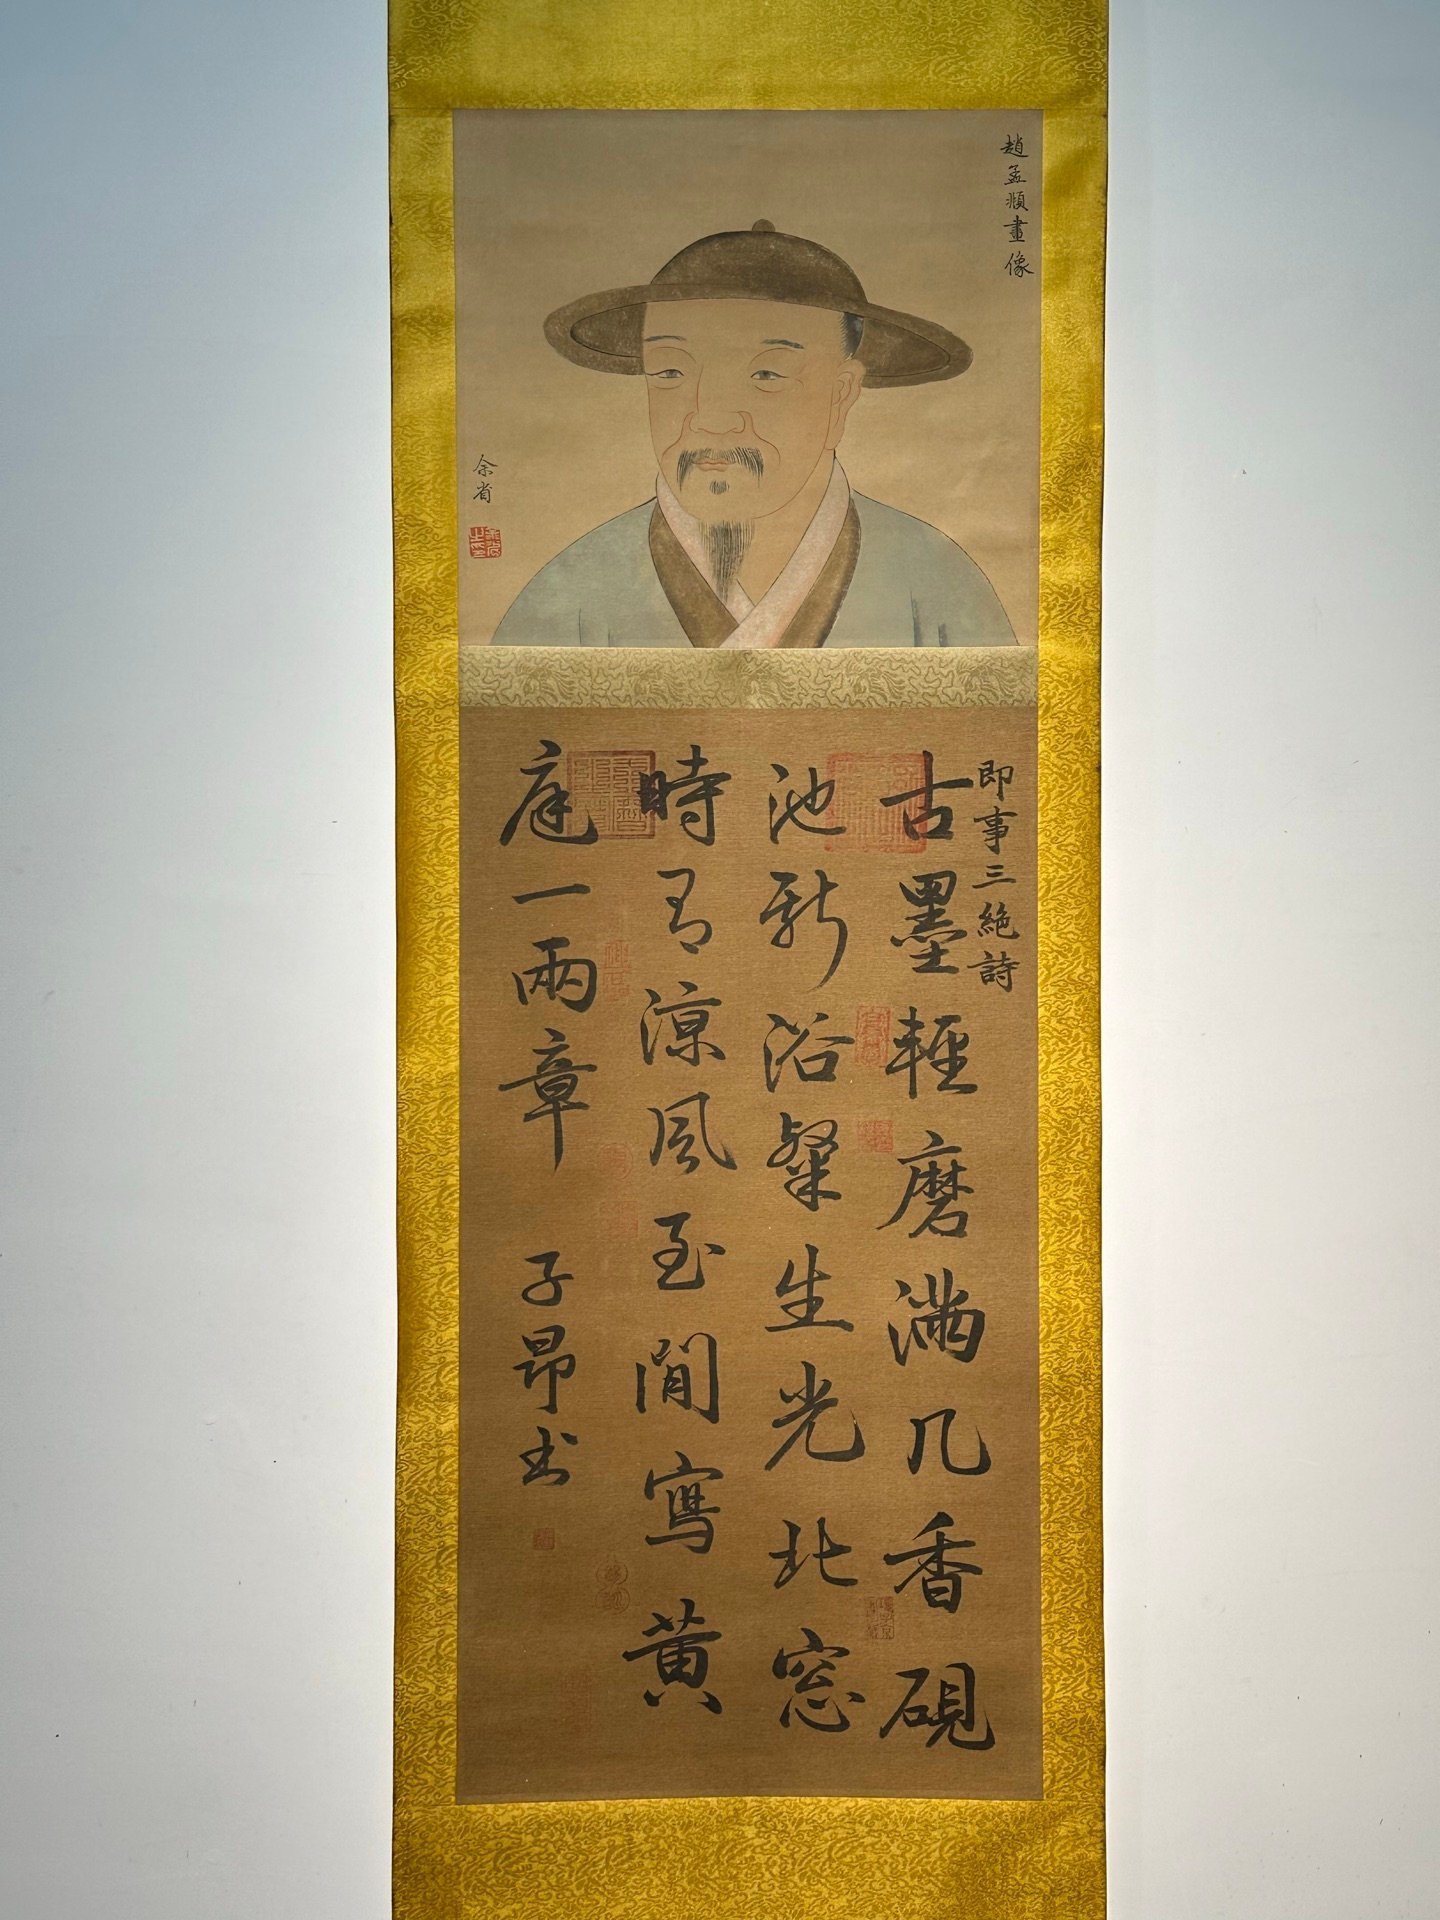 趙孟頫畫像
余省
即事三絶詩
古墨輕磨滿几香硯
池新浴粲生光北窓
時有涼風至閒寫黄
庭一兩章 子昂书